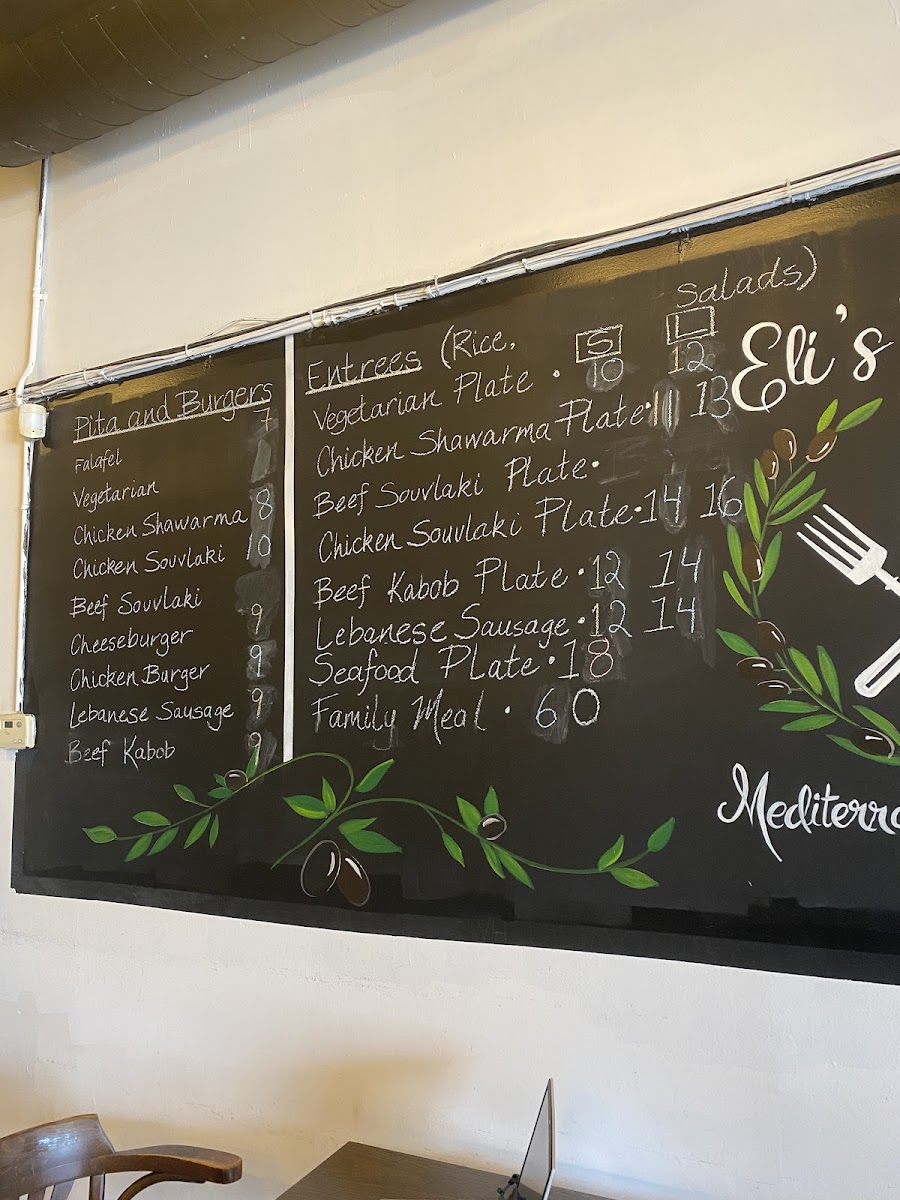 Pita and Burgers
Falafel 7
Vegetarian
Chicken Shawarma 8
Chicken Souvlaki 10
Beef Souvlaki
Cheeseburger 9
Chicken Burger 9
Lebanese Sausage 9
Beef Kabob 9
Entrees (Rice, Salads)
S L
Vegetarian Plate · 10 12
Chicken Shawarma Plate · 11 13
Beef Souvlaki Plate ·
Chicken Souvlaki Plate · 14 16
Beef Kabob Plate · 12 14
Lebanese Sausage · 12 14
Seafood Plate · 18
Family Meal · 60
Eli's
Mediterra